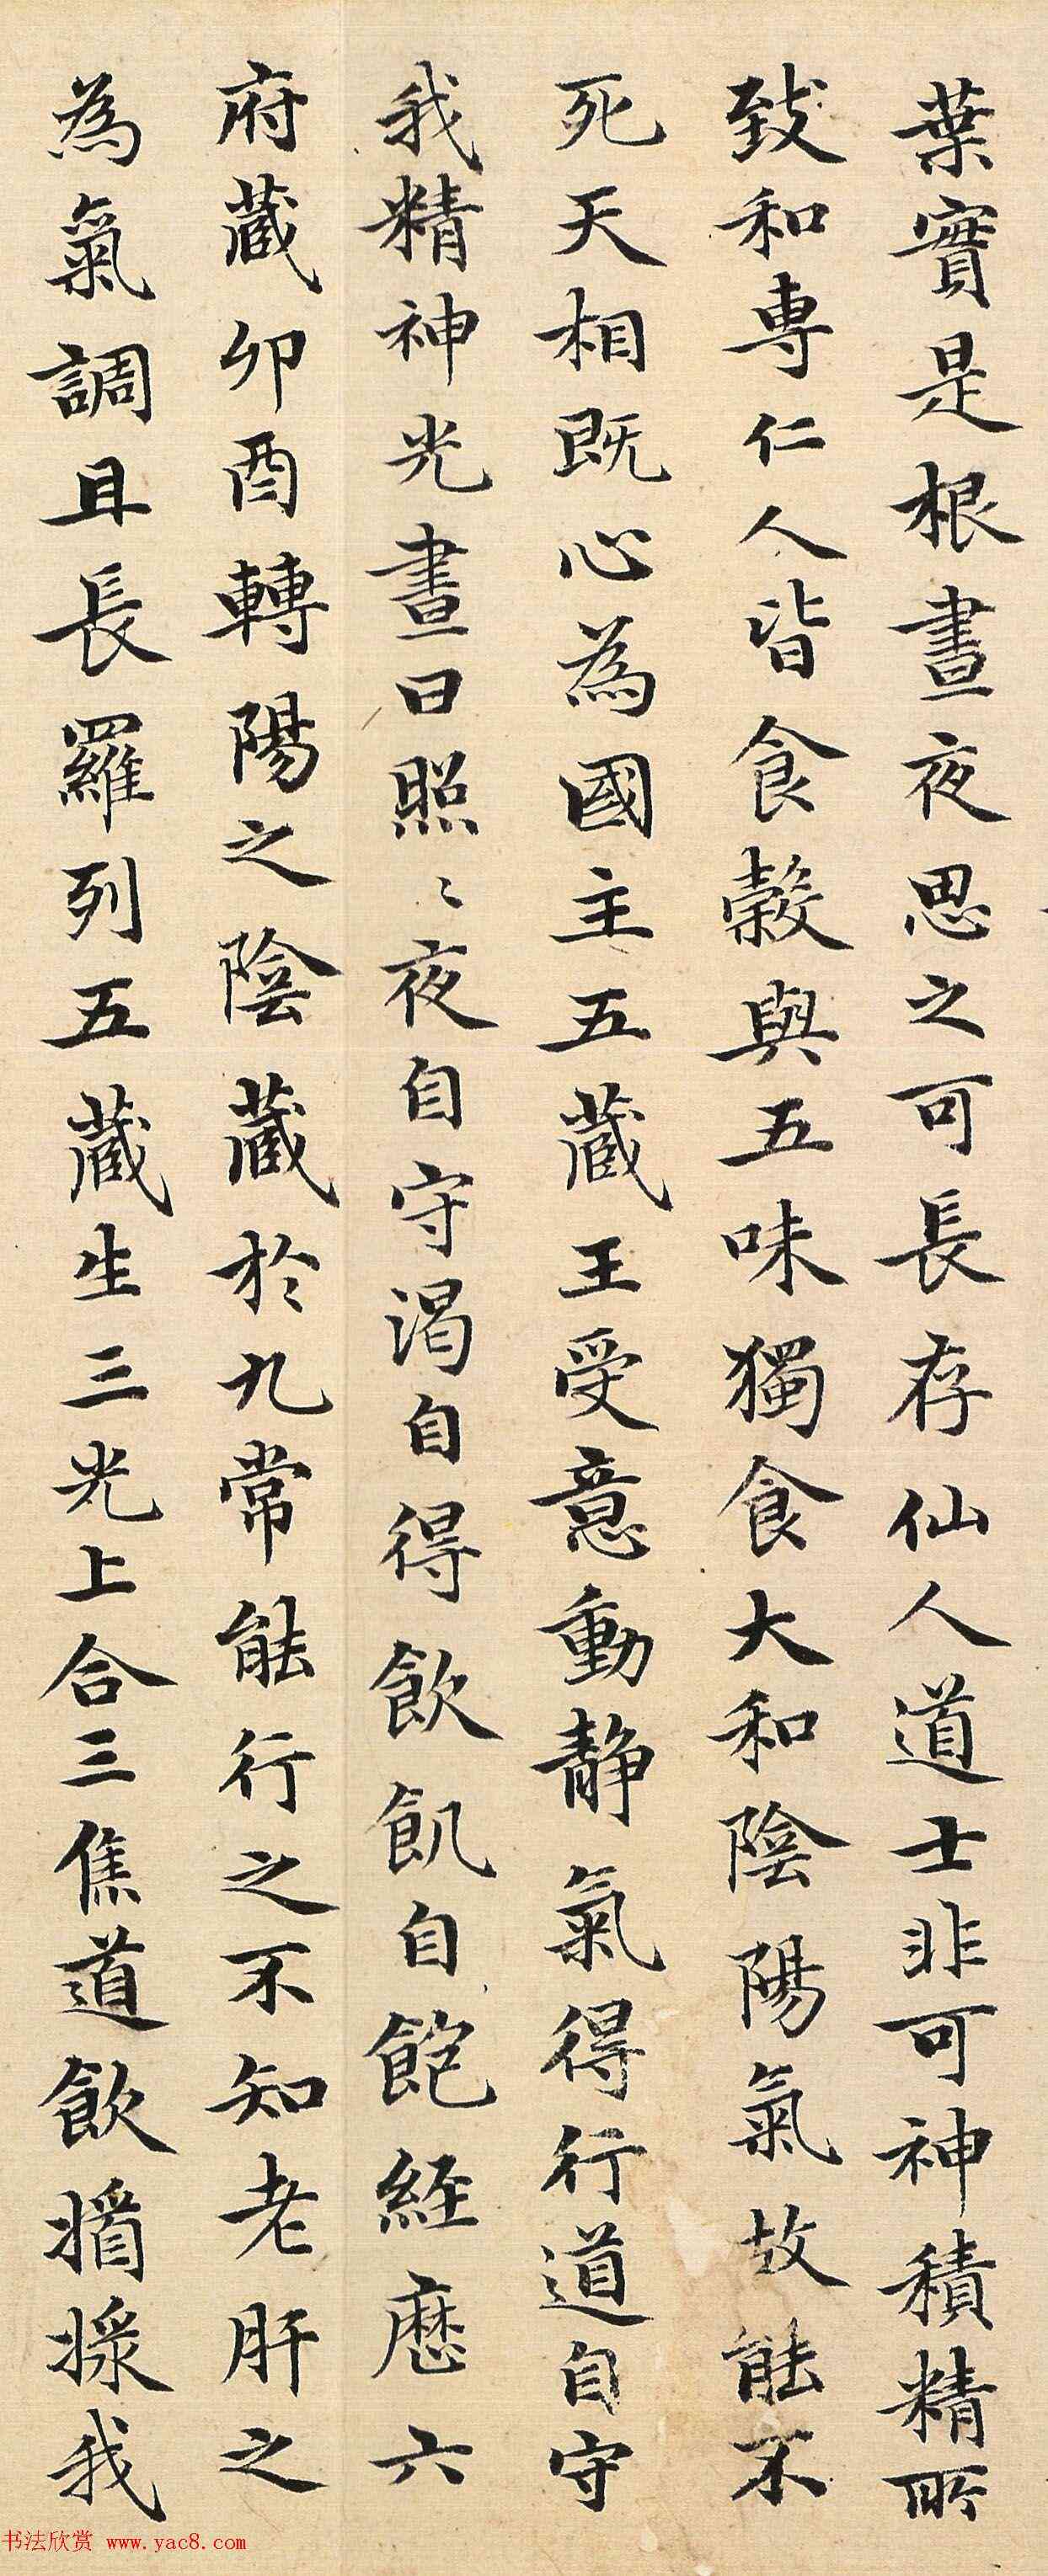 葉實是根晝夜思之可長存仙人道士非可神積精所
致和專仁人皆食穀與五味獨食大和陰陽氣故能不
死天相既心為國主五藏王受意動靜氣得行道自守
我精神光晝日照〻夜自守渴自得飲飢自飽經歷六
府藏卯酉轉陽之陰藏於九常能行之不知老肝之
為氣調且長羅列五藏生三光上合三焦道飲我
书法欣赏 www.yac8.com